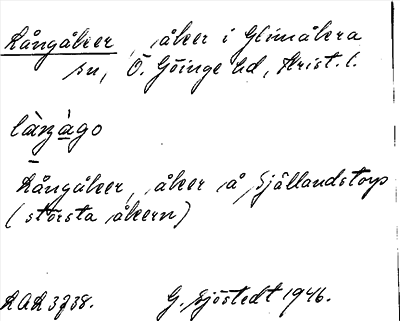 Långåker, åker i Glimåkra
sn, Ö. Göinge hd, Krist. l.
làŋàgo
Långåker, åker å Sjöllandstorp
(största åkern)
LAL 3738. G. Sjöstedt 1946.